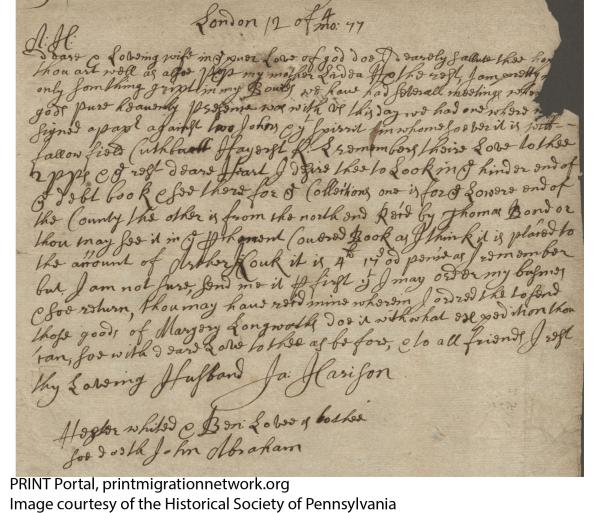 London 12 of 4 mo: 77
deare & Loveing wife in ye puer Love of god doe I dearely Salute thee
thou art well as alsoe my mother Liddea & the rest, I am pretty
only somthing gript in my Bowels we have had severall meetings
gods pure heavenly presense was with us this day we had one where
signed a papr against two Johns & yt spirrit in whome soever it is
fallow field Cuthbutt Hayerst remembers theire Love to thee
& ye rest deare Heart I desire thee to Look in ye hinder end of
ye debt book & see there for ye Collections one is for ye Lowere end of
the County the other is from the north end Re'd by Thomas Bond or
thou may see it in ye Covered Book as I think it is placed to
the account of it is 4 17 od penie as I remember
but I am not sure, send me it first yt I may order my busines
& soe return, thou may have re'd mine wherein I ordred the to send
those goods of Margery Longworths doe it with what expedition thou
can, soe with deare Love to thee as before, & to all friends I rest
thy Loveing Husband Ja: Harison
whited & Ben: Love is to thee
soe doeth John Abraham
PRINT Portal, printmigrationnetwork.org
Image courtesy of the Historical Society of Pennsylvania